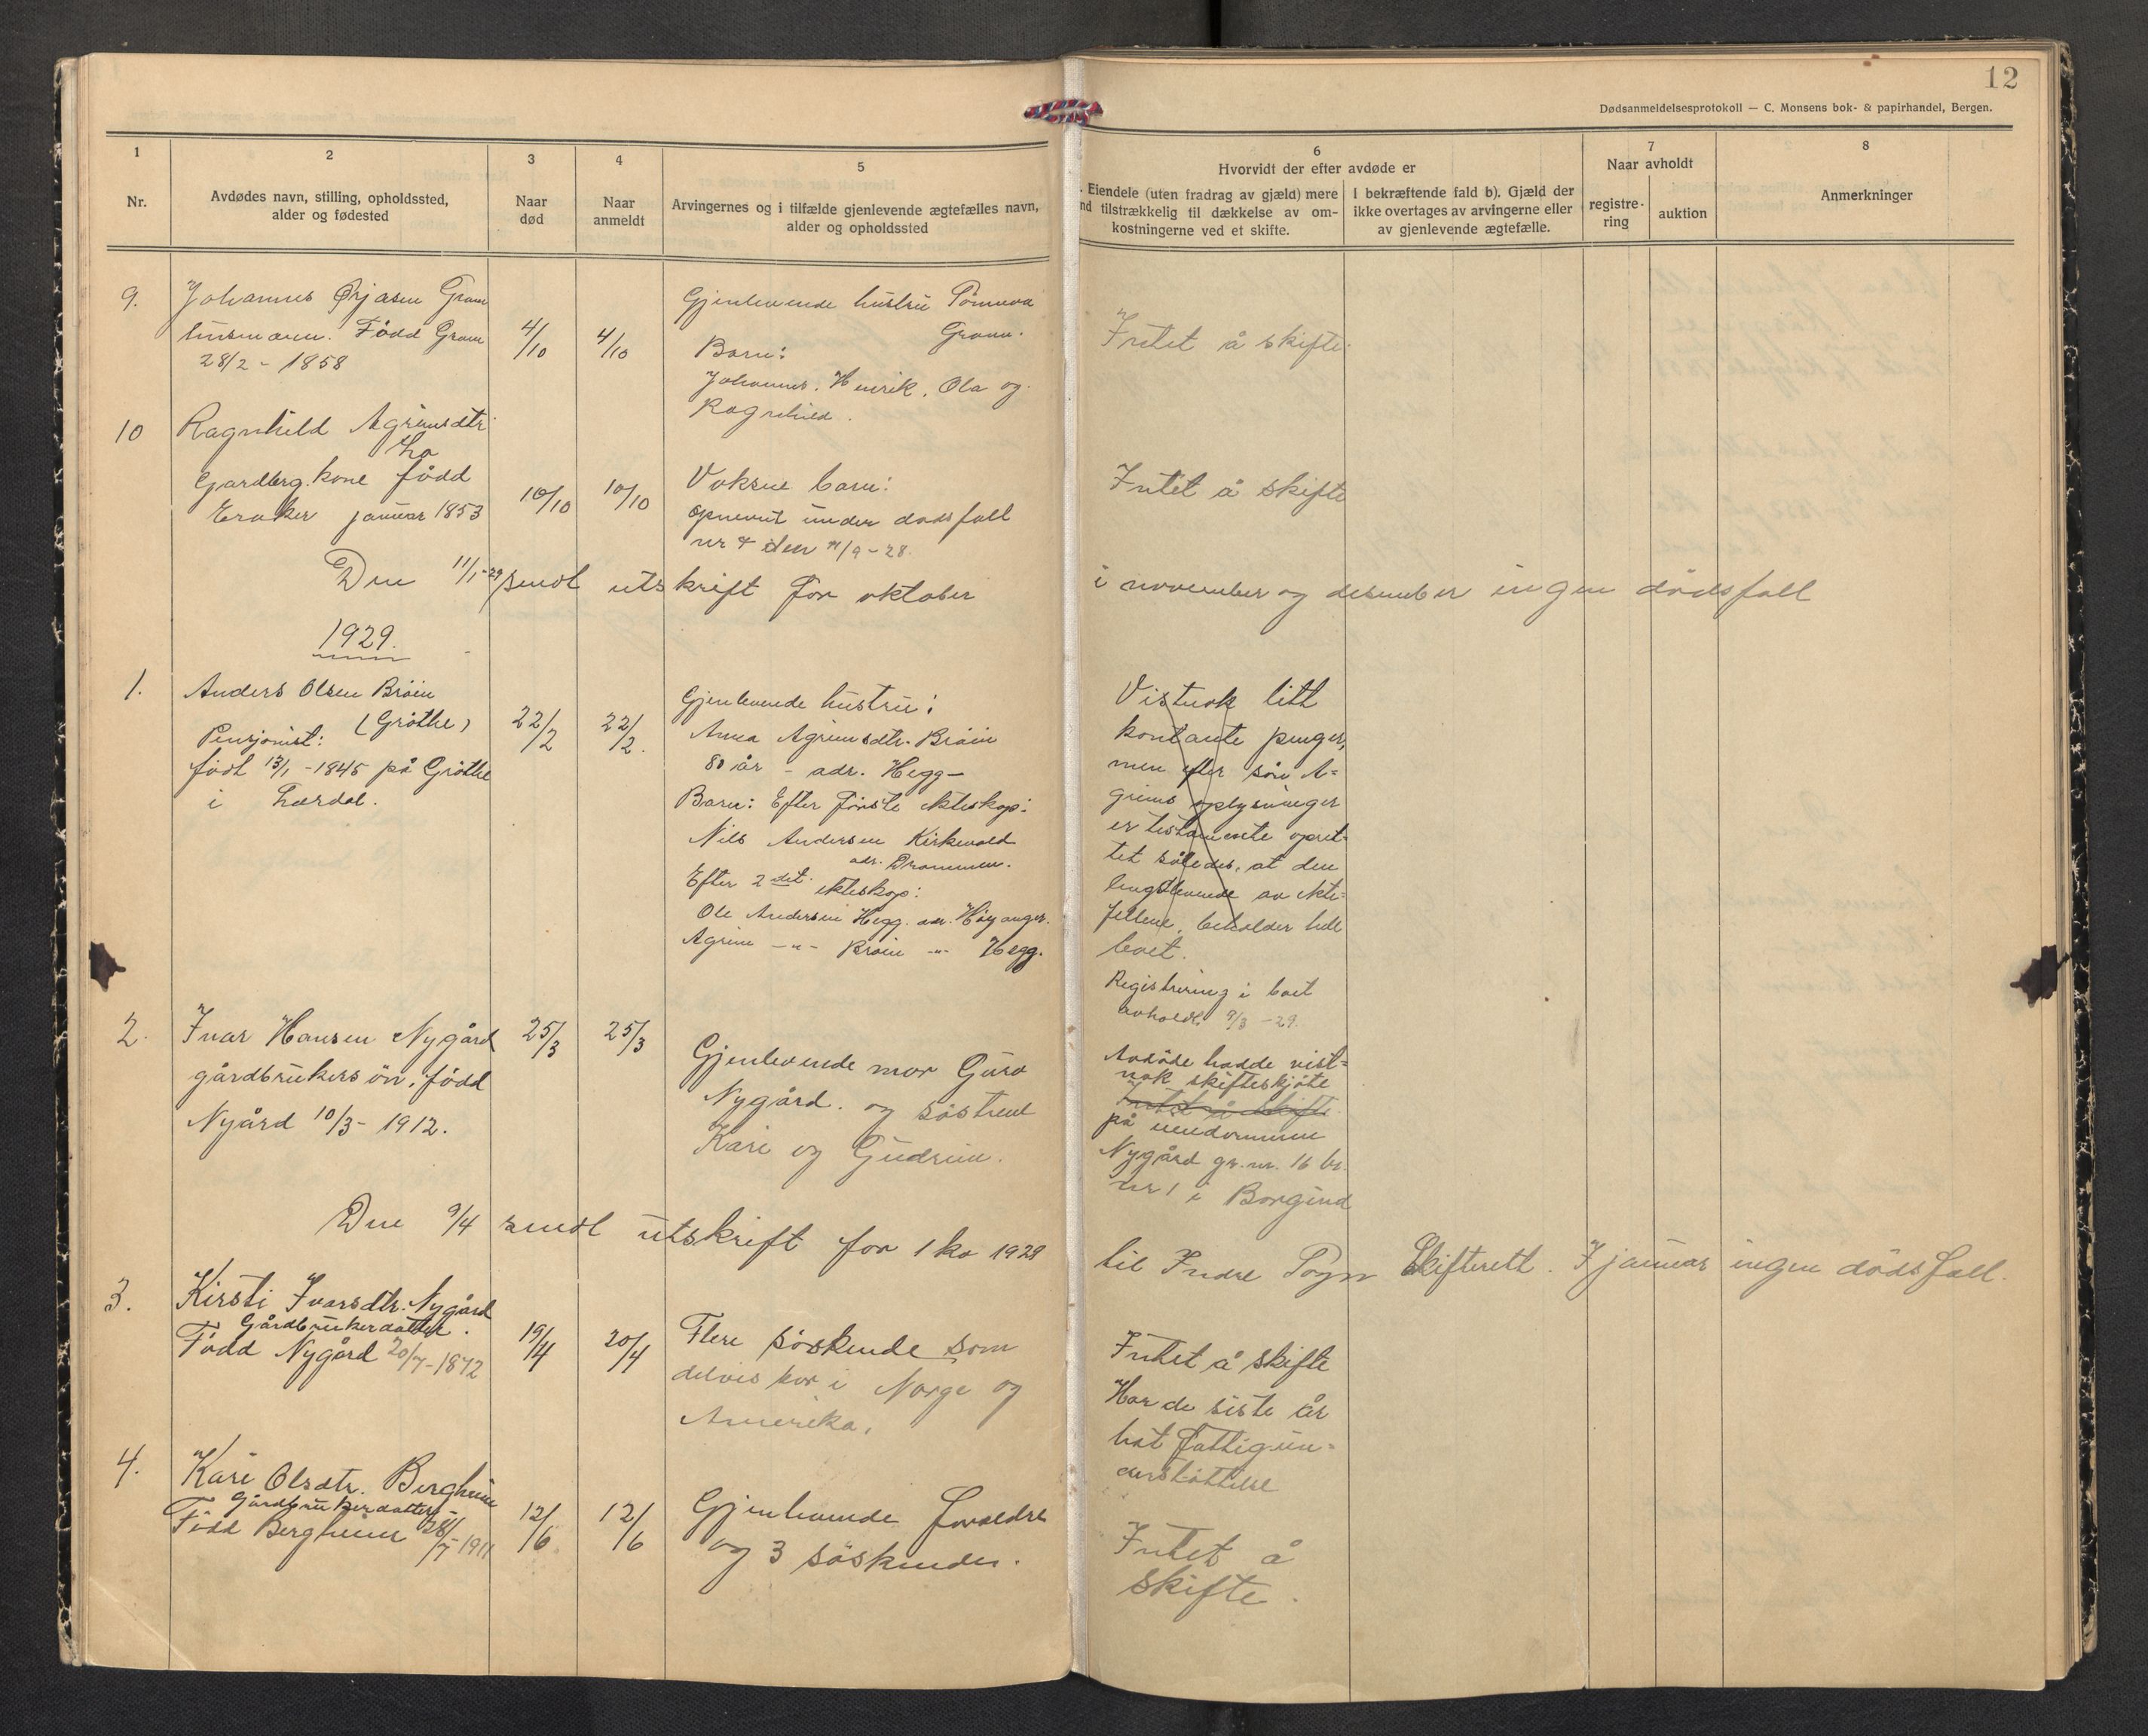 12
Dødsanmeldelsesprotokoll — C. Monsens bok- & papirhandel, Bergen.
1
Nr.
2
Avdødes navn, stilling, opholdssted,
alder og fødested
3
Naar
død
4
Naar
anmeldt
5
Arvingernes og i tilfælde gjenlevende ægtefælles navn,
alder og opholdssted
6
Hvorvidt der efter avdøde er
Eiendele (uten fradrag av gjæld) mere
nd tilstrækkelig til dækkelse av om-
kostningerne ved et skifte.
I bekræftende fald b). Gjæld der
ikke overtages av arvingerne eller
av gjenlevende ægtefælle.
7
Naar avholdt
registre-
ring
auktion
8
Anmerkninger
9.
Johannes Ørjasen Gram
husmann. Född Gram
28/2 - 1858
4/10
4/10
Gjenlevende hustru
Gram.
Barn:
Johannes, Henrik, Ola og
Ragnhild.
Intet å skifte.
10
Ragnhild Agrimsdtr
Lo
Gardberg. kone född
Eraker januar 1853
10/10
10/10
Voksne barn:
opnevnt under dødsfall
nr 4 den /9-28.
Intet å skifte
Den 11/1-29 sendt utskrift for oktober
i november og desember ingen dödsfall
1929.
1.
Anders Olsen Bröin
(Gröthe)
Pensjonist:
født 13/1 - 1845 på Gröthe
i Lærdal.
22/2
22/2.
Gjenlevende hustru:
Anna Agrimsdtr. Bröin
80 år - adr. Hegg -
Barn: Efter förste ekteskap:
Nils Andersen Kirkevold
adr. Drammen.
Efter 2det ekteskap:
Ole Andersen Hegg. adr. Høyanger.
Agrim -"- Bröin -"- Hegg.
Vistnok litt
kontante penger,
men efter sön A=
grims oplysninger
er testamente opret-
tet således, at den
lengstlevende av ekte=
fellene, beholder hele
boet.
Registrering i boet
avholdt 9/3 -29.
2.
Ivar Hansen Nygård
gårdbrukersön, född
Nyård 10/3 - 1912.
25/3
25/3
Gjenlevende mor Guro
Nygård. og söstrene
Kari og Gudrun.
Avdöde hadde vist=
nok skifteskjöte
Intet å skifte.
på eiendommen
Nygård gr. nr. 16 br.
nr 1 i Borgund
Den 9/4 sendt utskrift for 1 kv 1929
til Indre Sogn Skifterett. I januar ingen dödsfall.
3.
Kirsti Ivarsdtr. Nygård
Gårdbrukerdatter.
Född Nygård 20/7-1872
19/4
20/4
Flere söskende som
delvis bor i Norge og
Amerika.
Intet å skifte
Har de siste år
hat fattigun-
derstöttelse
4.
Kari Olsdtr. Bergheim
Gårdbrukerdatter -
Född Bergheim 28/7 1911
12/6
12/6
Gjenlevende foreldre
og 3 söskender.
Intet å
skifte.